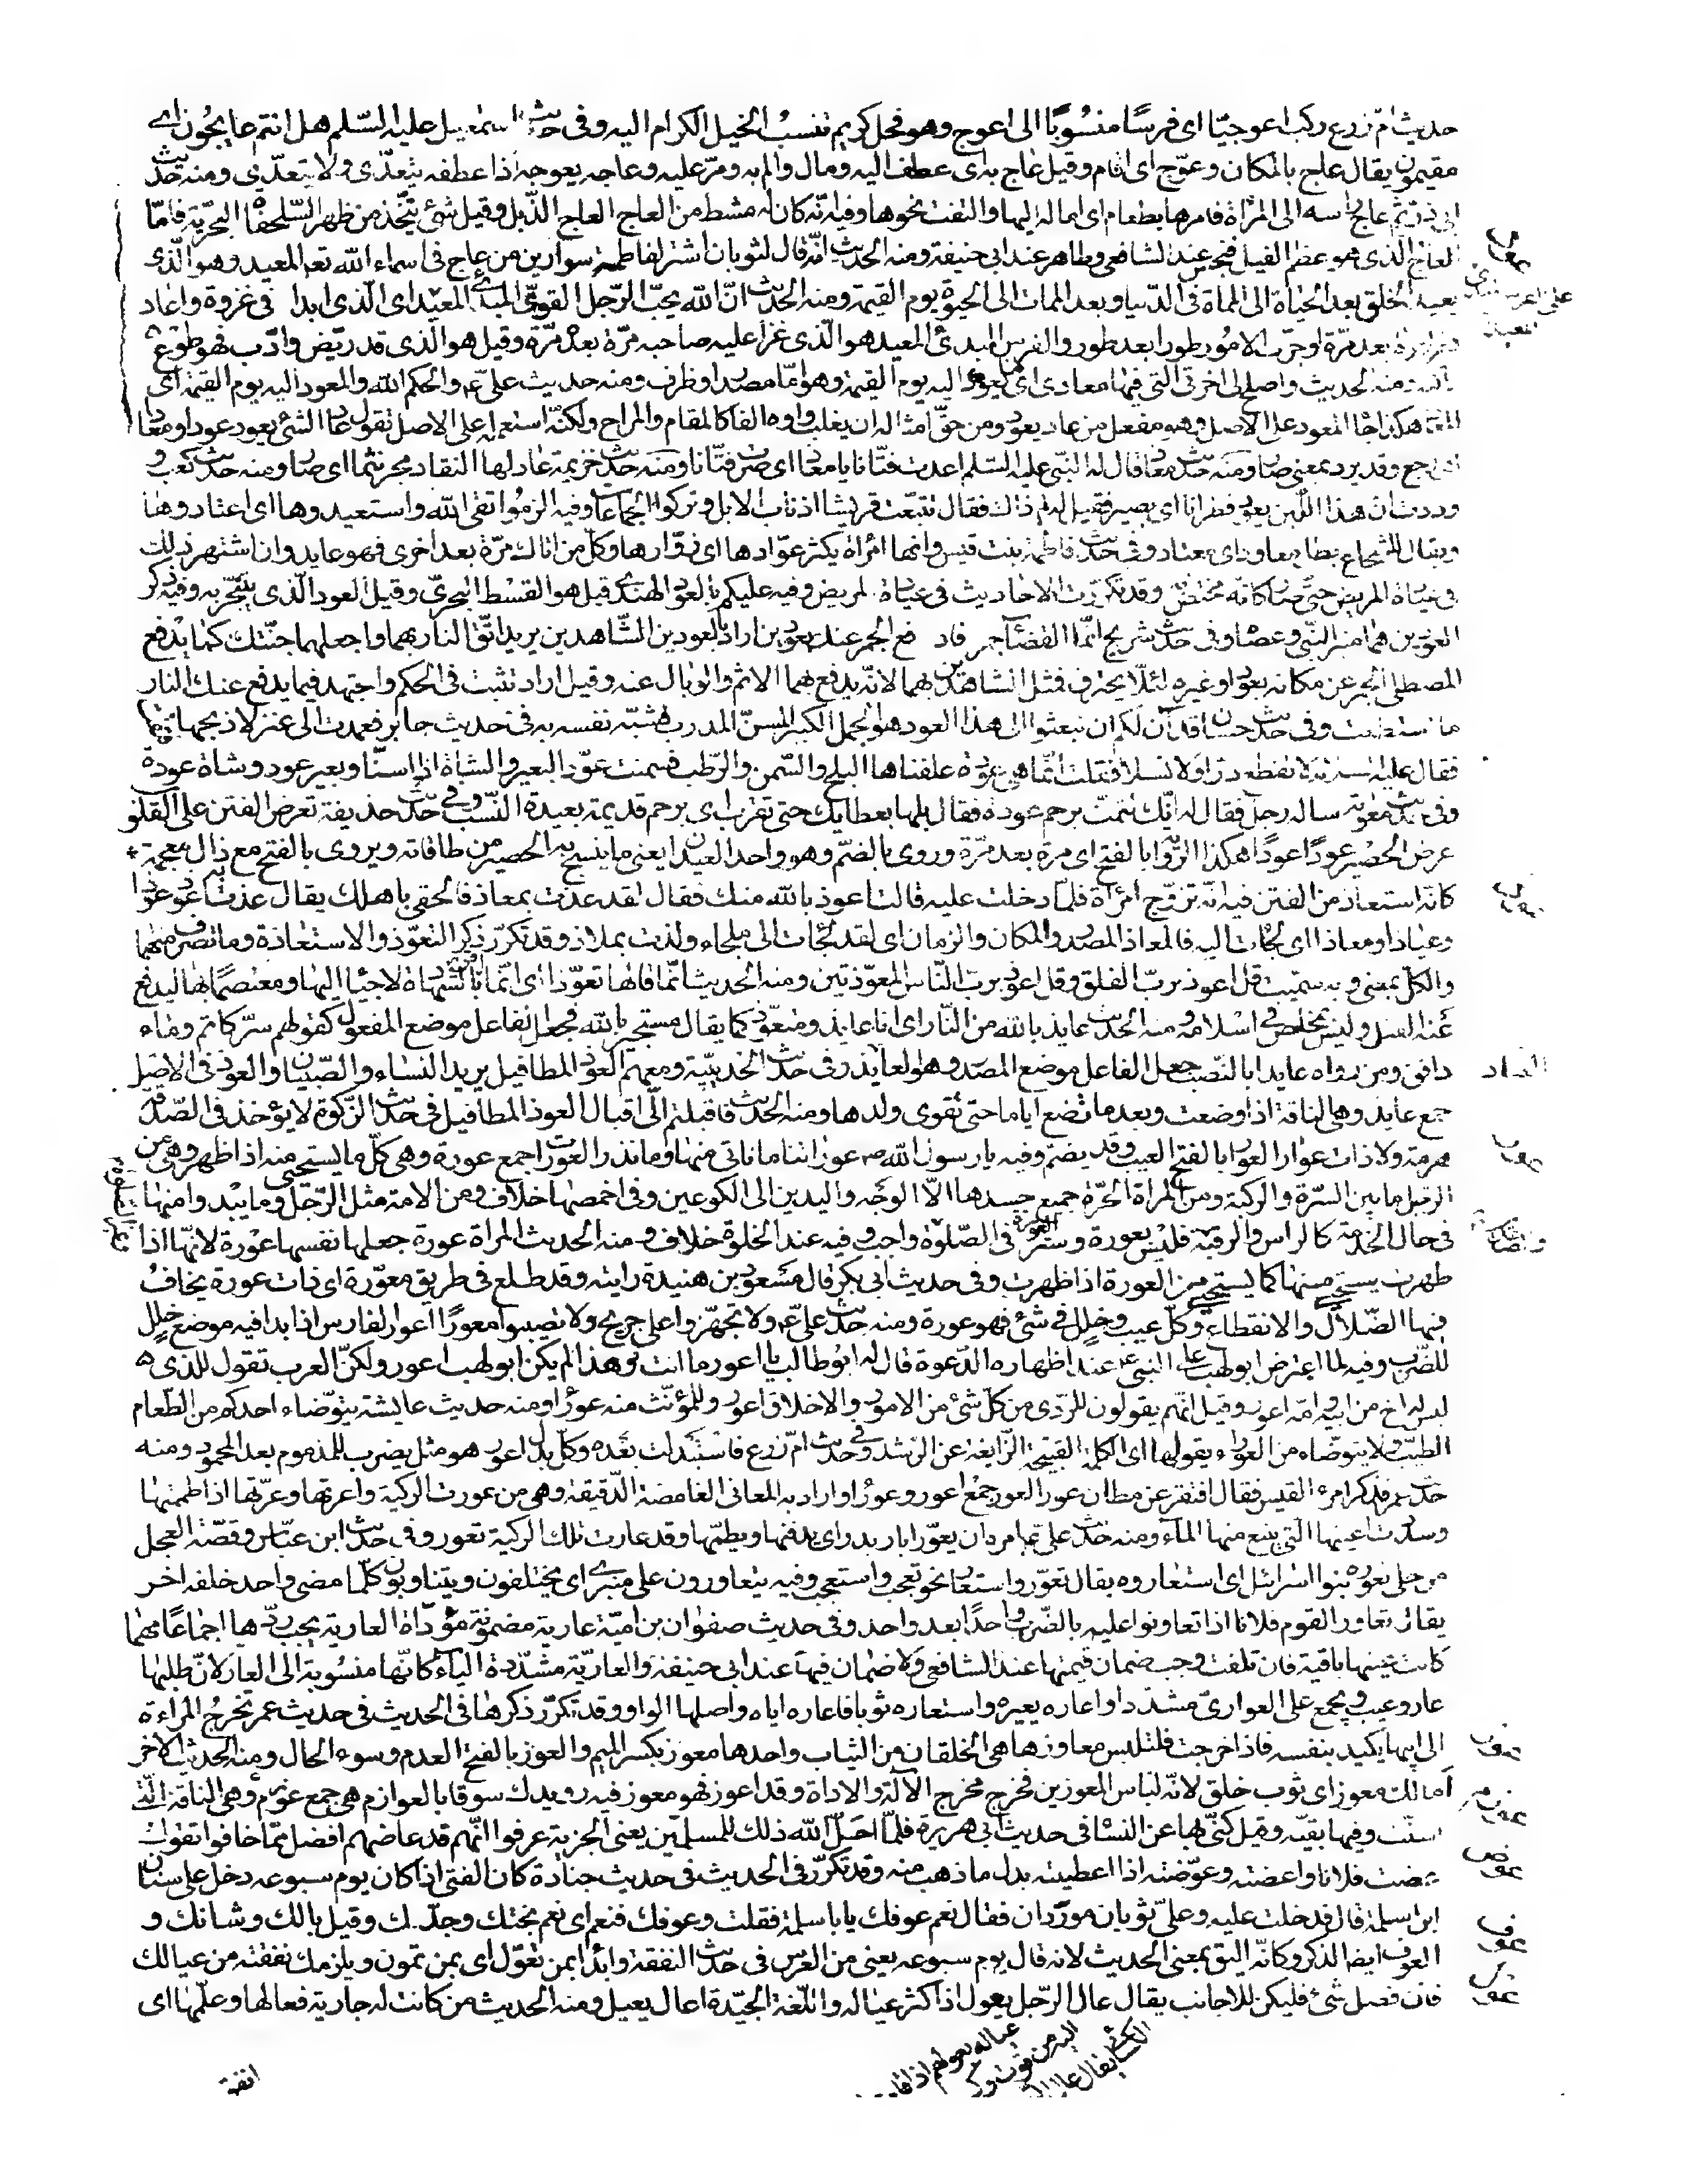 حديث ام زرع ركب اعوجيّا اى فرسًا منسُوبًا الى اعوج وهو فحل كريم تنسبُ الخيل الكرام اليه وفى حديث اسمعيل عليه السّلم هل انتم عايجُون اى
مقيمون يقال عاج بالمكان وعوّج اى اقام وقيل عاج به اى عطف اليه ومال والم به ومرّ عليه وعاجه يعوجه اذا عطفه يتعدّى ولا يتعدّى ومنه حديث
ابى ذر ثم عاج راسه الى المراة فامرها بطعام اى اماله اليها والتفت نحوها وفيه انّه كان له مشط من العاج العاج الذّبل وقيل شئ يتّخذ من ظهر السّلحفاة البحريّة فامّا
العاج الّذى هو عظم الفيل فنجس عند الشافعى وطاهر عند ابى حنيفة ومنه الحديث انّه قال لثوبان اشتر لفاطمة سوارين من عاج فى اسماء الله تعم المعيد وهو الّذى
يعيد الخلق بعد الحياة الى المماة فى الدّنيا وبعد الممات الى الحيوة يوم القيمة ومنه الحديث انّ الله يحبّ الرّجل القوىّ المبدئ المعيد اى الّذى ابدا فى غزوة واعاد
بعد مرّة وجرّب الامُور طورا بعد طور والفرس المبدئ المعيد هو الّذى غزا عليه صاحبه مرّة بعد مرّة وقيل هو الّذى قد ريّض وادّب فهو طوع
ومنه الحديث واصلح لى اخرتى التى فيها معادى اى ما يعود اليه يوم القيمة وهو امّا مصدر او ظرف ومنه حديث علىّ عم والحكم الله والمعود اليه يوم القيمة اى
هكذا جاء المعود على الاصل وهو مفعل من عاد يعود ومن حقّ امثاله ان يغلب واوه الفا كالمقام والمراح ولكنّه استعمله على الاصل تقول عاد الشئ يعود عودا ومعادا
اى رجع وقد يرد بمعنى صار ومنه حديث معاذ قال له النّبى عليه السّلم اعدت فتّانا يا معاذ اى صرت فتّانا ومنه حديث خزيمة عاد لها النقاد مجرنثما اى صار ومنه حديث كعب
وددت ان هذا اللّبن يعود قطرانا اى يصير فقيل له لم ذاك فقال تتبّعت قريش اذناب الابل وتركوا الجماعات وفيه الزمُوا تقى الله واستعيدوها اى اعتادوها
ويقال للشجاع بطل معاود اى معتاد وفى حديث فاطمة بنت قيس وانها امراة يكثر عوّادها اى زوّارها وكلّ من اتاك مرّة بعد اخرى فهو عايد وان اشتهر ذلك
فى عيادة المريض حتى صار كانّه مختصّ به وقد تكرّرت الاحاديث فى عيادة المريض وفيه عليكم بالعود الهندى قيل هو القسْط البحرىّ وقيل العود الّذى يتبخّر به وفيه ذكر
العودين هما منبر النّبى وعصاه وفى حديث شريح انّما القضاء جمر فادفع الجمر عنك بعودين اراد بالعودين الشّاهدين يريد اتّق النار بهما واجعلهما جنّتك كما يدفع
المصطلى الجمر عن مكانه بعود او غيره لئلّا يحترق فمثل الشاهدين بهما لانّه يدفع بهما الاثم والوبال عنه وقيل اراد تثبت فى الحكم واجتهد فيما يدفع عنك النار
ما استطعت وفى حديث حسان قد آن لكم ان تبعثوا الى هذا العود هو الجمل الكبير المسنّ المدرب فشبّه نفسه به فى حديث جابر فعمدت الى عنز لاذبحها فثغت
فقال عليه السّلم لا تقطع درّا ولا نسلا فقلت انّما هى عودة علفناها البلح والرّطب فسمنت عوّد البعير والشاة اذا اسنّا وبعير عود وشاة عودة
وفى حديث معوية ساله رجل فقال له انّك لتمتّ برحم عودة فقال بلّها بعطايك حتى تقرب اى برحم قديمة بعيدة النّسب وفى حديث حذيفة تعرض الفتن على القلوب
عرض الحصير عودًا عودًا هكذا الرواية بالفتح اى مرة بعد مرّة وروى بالضمّ وهو واحد العيدان يعنى ما ينسج به الحصير من طاقاته ويروى بالفتح مع ذال معجمة
كانّه استعاذ من الفتن فيه انّه تزوّج امراة فلمّا دخلت عليه قالت اعوذ بالله منك فقال لقد عذت بمعاذ فالحقى باهلك يقال عذت به اعوذ عوذا
وعياذا ومعاذا اى لجات اليه فالمعاذ المصدر والمكان والزمان اى لقد لجات الى ملجاء ولذت بملاذ وقد تكرّر ذكر التعوّذ والاستعاذة وما تصرف منهما
والكلّ بمعنى وبه سمّيت قل اعوذ بربّ الفلق وقل اعوذ بربّ النّاس المعوّذتين ومنه الحديث انّما قالها تعوّذا اى انّما اقرّ بالشّهادة لاجيًا اليها ومعتصمًا بها ليدفع
عنه القتل وليس بمخلص فى اسلامه ومنه الحديث عايذ بالله من النّار اى انا عايذ ومتعوّذ كما يقال مستجير بالله فجعل الفاعل موضع المفعول كقولهم سرّ كاتم وماء
دافق ومن رواه عايذا بالنّصب جعل الفاعل موضع المصدر وهو العياذ وفى حديث الحديبيّة ومعهم العوذ المطافيل يريد النساء والصّبيان والعوذ فى الاصل
جمع عايذ وهى الناقة اذا وضعت وبعد ما تضع اياما حتى تقوى ولدها ومنه الحديث فاقبلتم الىّ اقبال العوذ المطافيل فى حديث الزّكوة لا يؤخذ فى الصّدقة
هرمة ولا ذات عوار العوار بالفتح العيب وقد يضمّ وفيه يا رسول الله ص عوراتنا ما ناتى منها وما نذر العورات جمع عورة وهى كلّ ما يستحيى منه اذا ظهر وهى من
الرّجل ما بين السّرّة والركبة ومن المراة الحرّة جميع جسدها الّا الوجه واليدين الى الكوعين وفى اخمصها خلاف ومن الامة مثل الرّجل وما يبدوا منها
فى حال الخدمة كالراس والرقبة فليس بعورة وستر العورة فى الصّلوة واجب وفيه عند الخلوة خلاف ومنه الحديث المراة عورة جعلها نفسها عورة لانّها اذا
ظهرت يستحيى منها كما يستحيى من العورة اذا ظهرت وفى حديث ابى بكر قال مسعود بن هنيدة رايته وقد طلع فى طريق معوّرة اى ذات عورة يخافُ
فيها الضّلال والانقطاع وكلّ عيب وخلل فى شئ فهو عورة ومنه حديث علىّ عم ولا تجهّزوا على جريح ولا تصيبوا معورًا اعور الفارس اذا بدا فيه موضع خلل
للضّرب وفيه لما اعترض ابو لهب على النبى عم عند اظهاره الدّعوة قال له ابُو طالب يا اعور ما انت وهذا لم يكن ابو لهب اعور ولكنّ العرب تقول للذى
ليس له اخ من ابيه وامّه اعور وقيل انّهم يقولون للرّدى من كلّ شئ من الامور والاخلاق اعور وللمؤنّث منه عورا ومنه حديث عايشة يتوضّاء احدكم من الطّعام
الطيّب ولا يتوضّاء من العوراء يقولها اى الكلمة القبيحة الزّايغة عن الرّشد وفى حديث امّ زرع فاستبدلت بعده وكلّ بدل اعور هو مثل يضرب للمذموم بعد المحمود ومنه
حديث عمر فذكر امرء القيس فقال افتقر عن معان عور العور جمْع اعور وعورا واراد به المعانى الغامضة الدّقيقة وهى من عورت الركية واعرتها وعرّتها اذا طممتها
وسددت اعينها التى ينبع منها المآء ومنه حديث علىّ عم امره ان يعوّر ابار بدر اى يدفنها ويطمّها وقد عارت تلك الركية تعور وفى حديث ابن عبّاس وقصّة العجل
من حلى تعوّره بنوا اسرائيل اى استعاروه يقال تعوّر واستعار نحو تعجب واستعجب وفيه يتعاورون على منبرى اى يختلفون ويتناوبون كلّما مضى واحد خلفه اخر
يقال تعاور القوم فلانا اذا تعاونوا عليه بالضّرب واحدًا بعد واحد وفى حديث صفوان بن اميّة عارية مضمونة مؤدّاة العارية يجب ردّها اجماعًا مهما
كانت عينها باقية فان تلفت وجب ضمان قيمتها عند الشافعى ولا ضمان فيها عند ابى حنيفة والعاريّة مشدّدة الياء كانّها منسُوبة الى العار لانّ طلبها
عار وعيب ويجمع على العوارىّ مشدّدا واعاره يعيره واستعاره ثوبا فاعاره اياه واصلها الواو وقد تكرّر ذكرها فى الحديث فى حديث عمر تخرجُ المراءة
الى ابيها يكيد بنفسه فاذا خرجت فلتلبس معاوزها هى الخلقان من الثياب واحدها معوز بكسر الميم والعوز بالفتح العدم وسوء الحال ومنه الحديث الاخر
امالك معوز اى ثوب خلق لانّه لباس المعوزين فخرج مخرج الآلة والاداة وقد اعوز فهو معوز فيه رويدك سوقا بالعوازم هى جمع عوزم وهى الناقة الّتى
اسنّت وفيها بقيّة وقيل كنّى بها عن النساء فى حديث ابى هريرة فلمّا احلّ الله ذلك للمسلمين يعنى الجزية عرفوا انّهم قد عاضهم افضل ممّا خافوا تقول
عضت فلانا واعضته وعوّضته اذا اعطيته بدل ما ذهب منه وقد تكرّر فى الحديث فى حديث جنادة كان الفتى اذا كان يوم سبوعه دخل على سنان
ابن سلمة قال فدخلت عليه وعلىّ ثوبان مورّدان فقال نعم عوفك يا با سلمة فقلت وعوفك فنعم اى نعم بختك وجدّك وقيل بالك وشانك و
العوف ايضا الذكر وكانّه اليق بمعنى الحديث لانه قال يوم سبوعه يعنى من العرس فى حديث النفقة وابدا بمن تعوّل اى بمن تمون ويلزمك نفقته من عيالك
فان فضل شئ فليكن للاجانب يقال عال الرّجل يعول اذا كثر عياله واللّغة الجيّدة اعال يعيل ومنه الحديث من كانت له جارية فعالها وعلّمها اى
انفق
عود
عوذ
عور
عوز
عوزم
عوض
عوف
عول